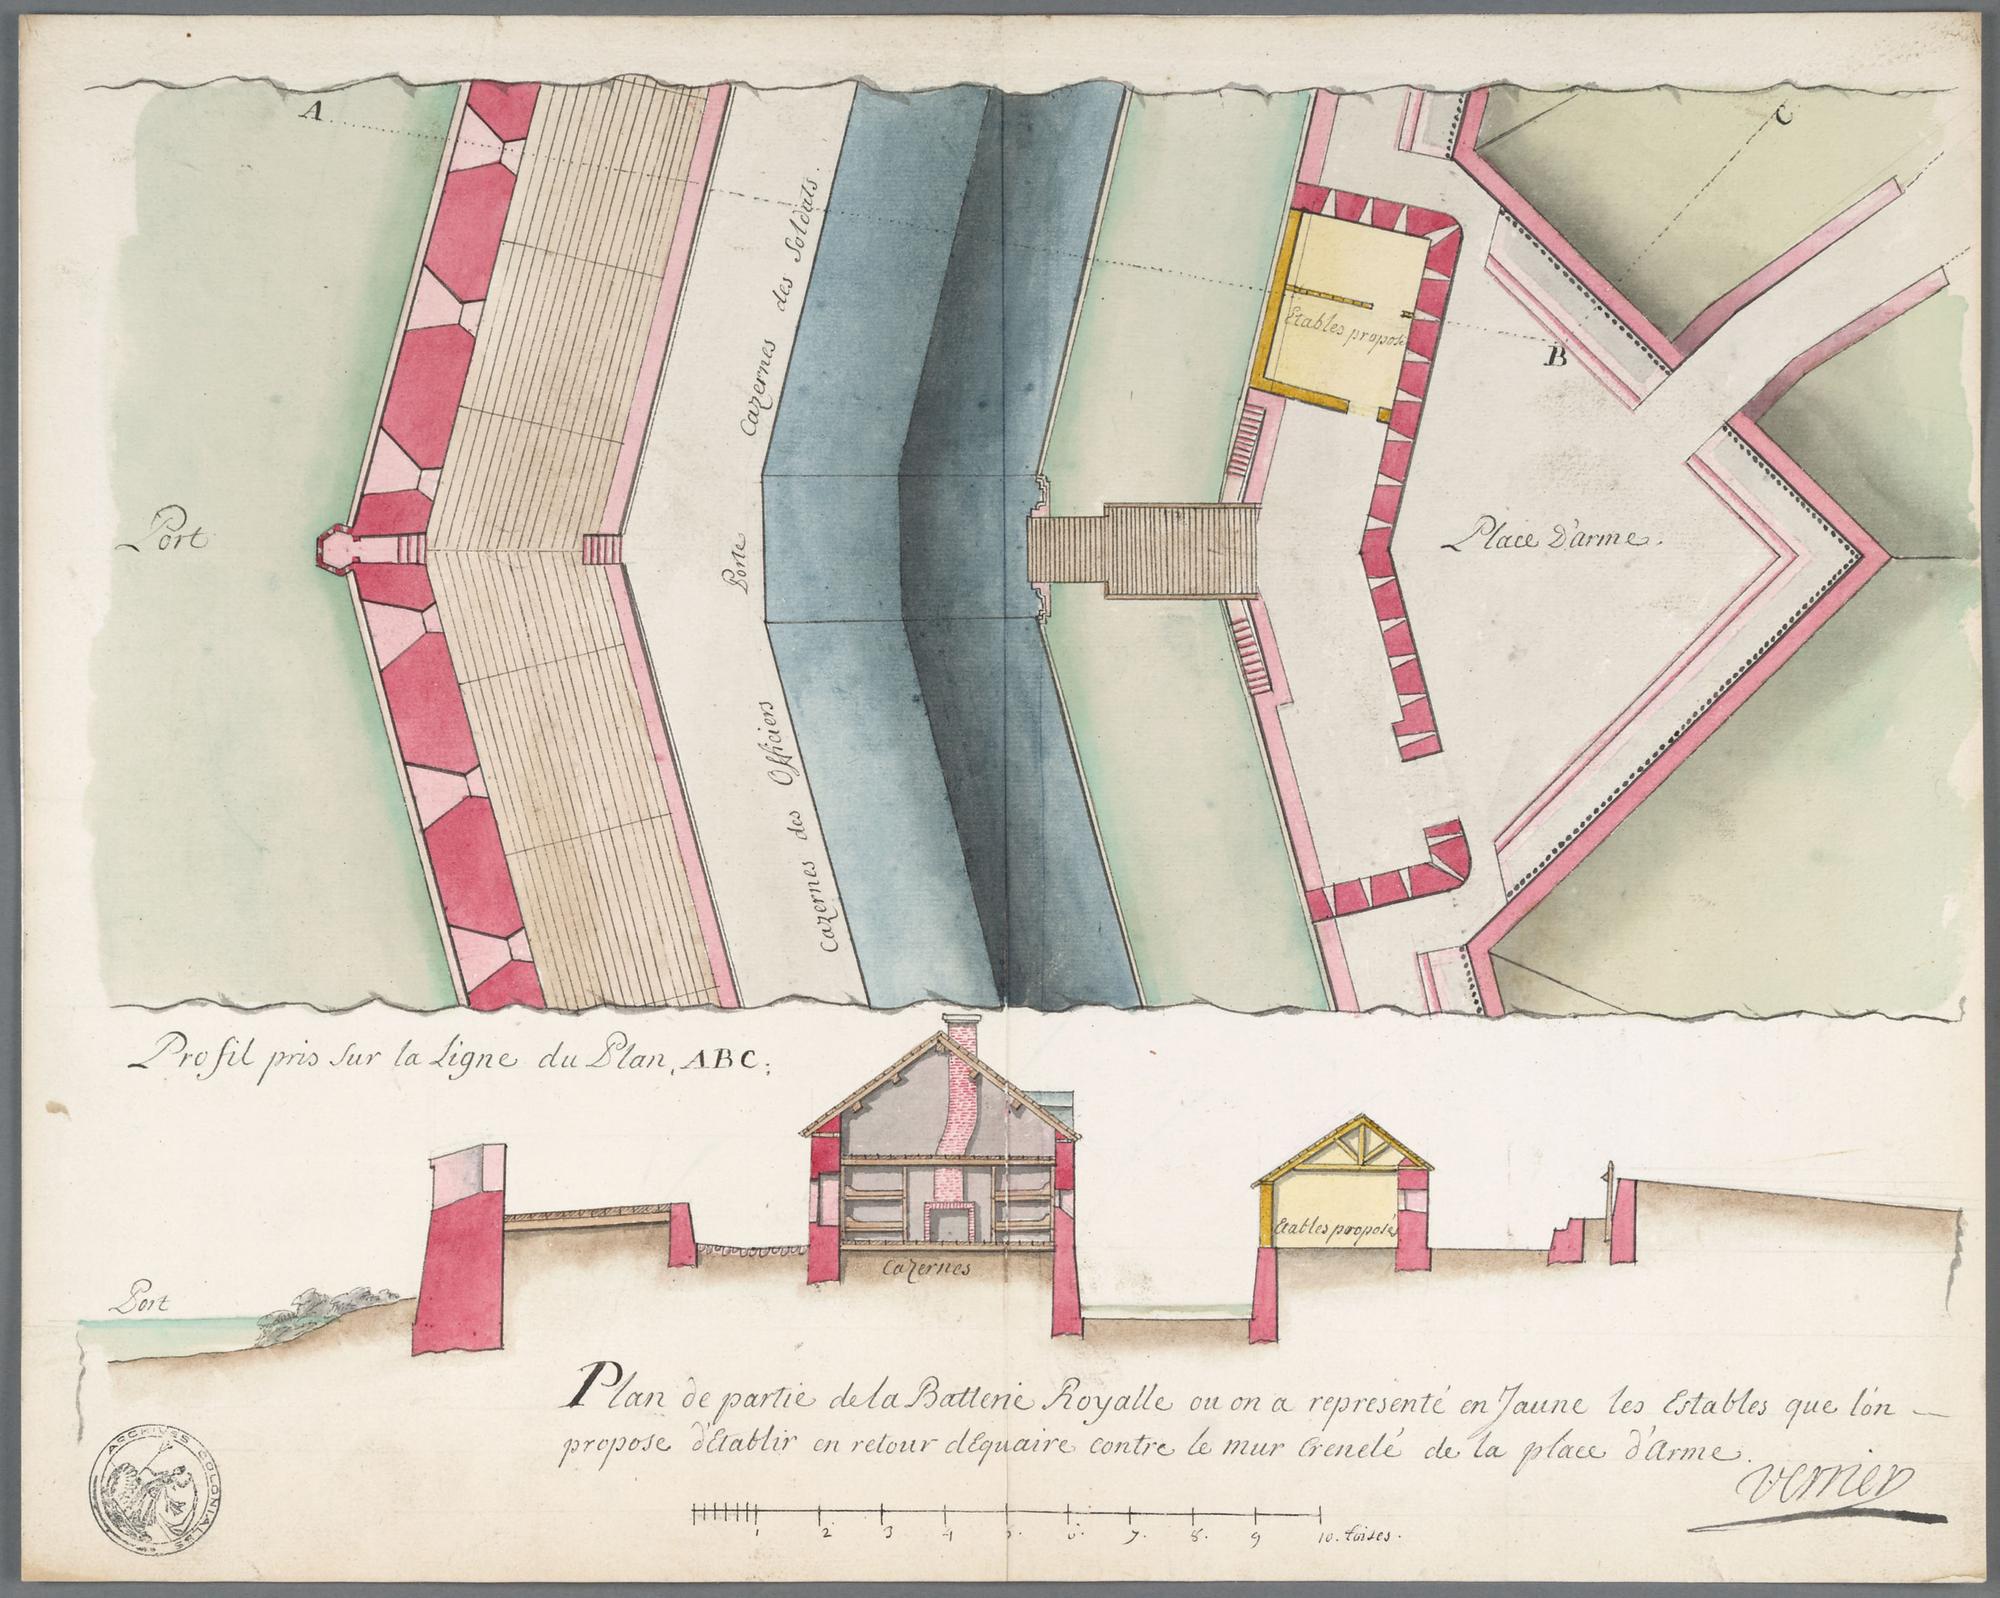 A
C
Cazernes des Soldats.
Etables proposé
B
Port
Porte
Place D'arme.
Cazernes des Officiers
Profil pris sur la Ligne du Plan, ABC;
Etables proposés
Cazernes
Port
Plan de partie de la Batterie Royalle ou on a representé en Jaune les Estables que l'on
propose d'Etablir en retour d'Equaire contre le mur Crenelé de la place d'Arme.
Verrier
ARCHIVES COLONIALES
1 2 3 4 5. 6. 7. 8. 9 10. toises.